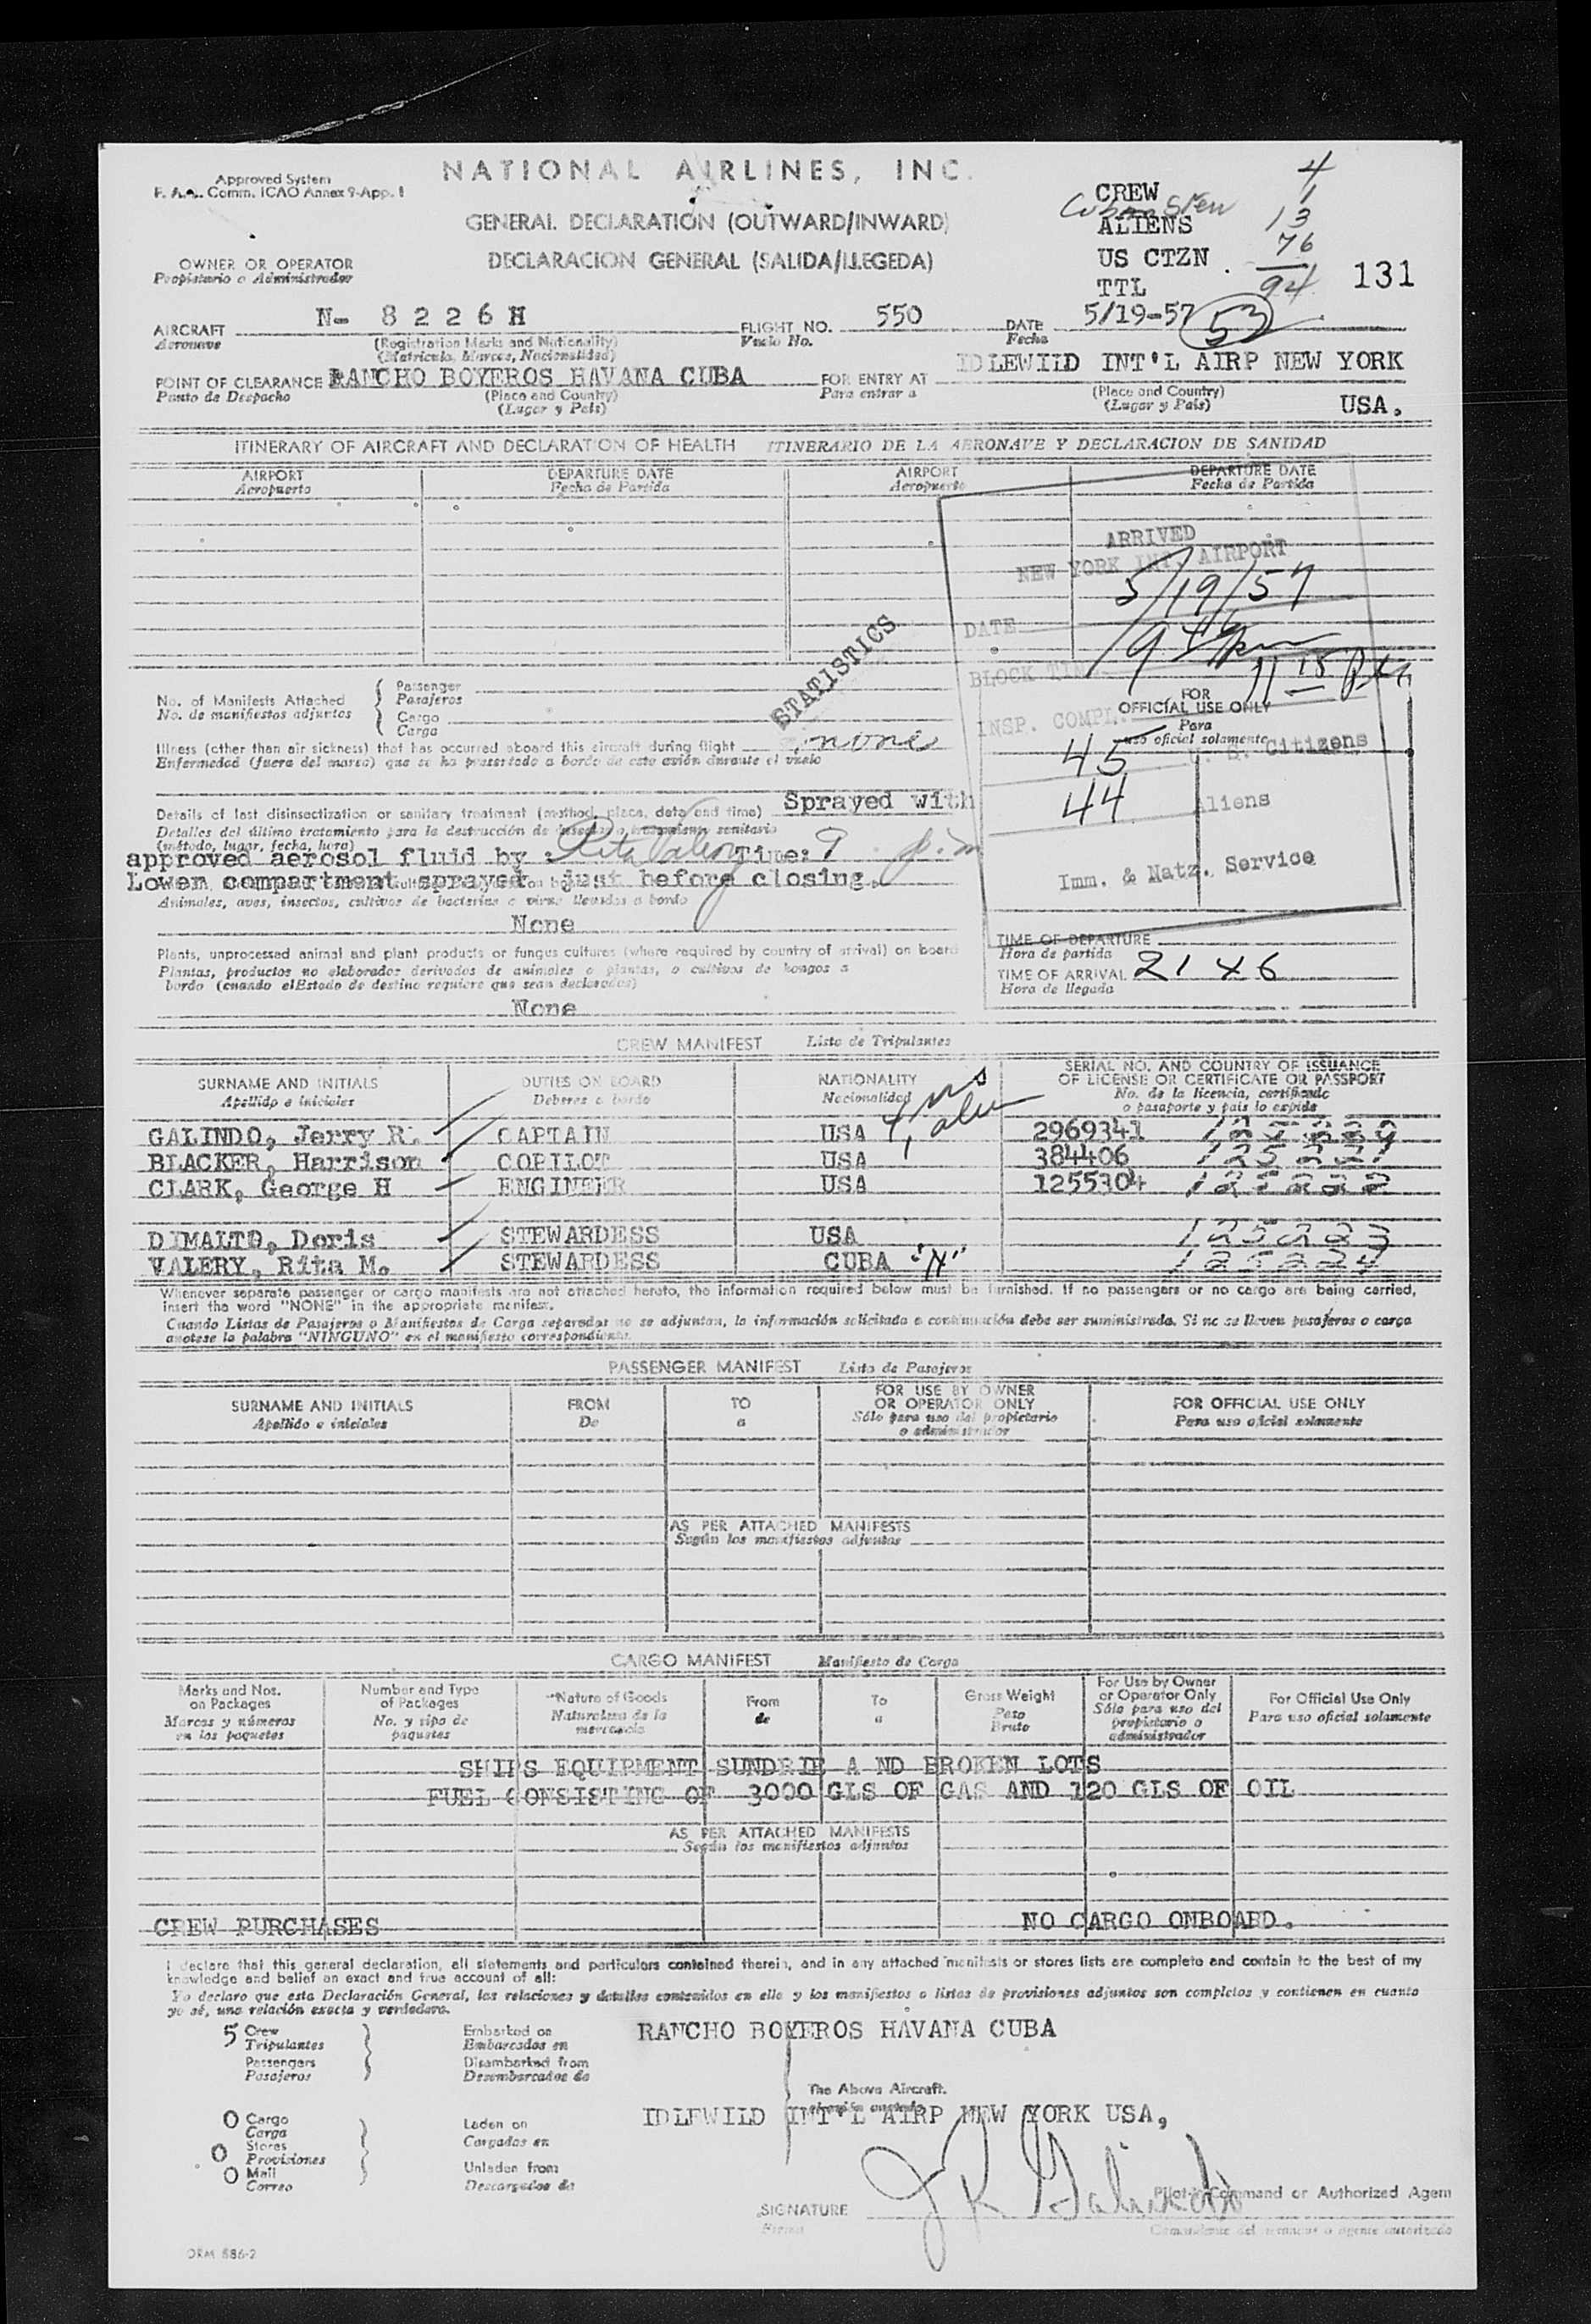 NATIONAL AIRLINES, INC.
Approved System
Comm. ICAO Annex 9-App. 1
GENERAL DECLARATION (OUTWARD/INWARD)
DECLARACION GENERAL (SALIDA/LLEGEDA)
OWNER OR OPERATOR
Propietario o Administrador
CREW 4
Cuban Stew 1
ALIENS 13
US CTZN 76
TTL 94
131
AIRCRAFT N- 8 2 2 6 H FLIGHT NO. 550 DATE 5/19-57 53
Aeronave (Registration Marks and Nationality) Vuelo No. Fecha
(Matricula, Marcas, Nacionalidad)
POINT OF CLEARANCE RANCHO BOYEROS HAVANA CUBA FOR ENTRY AT IDLEWILD INT'L AIRP NEW YORK
Punto de Despacho (Place and Country) Para entrar a (Place and Country) USA.
(Lugar y Pais) (Lugar y Pais)
ITINERARY OF AIRCRAFT AND DECLARATION OF HEALTH ITINERARIO DE LA AERONAVE Y DECLARACION DE SANIDAD
AIRPORT DEPARTURE DATE AIRPORT DEPARTURE DATE
Aeropuerto Fecha de Partida Aeropuerto Fecha de Partida
ARRIVED
NEW YORK INT. AIRPORT
DATE 5/19/57
BLOCK TIME 9 46 pm
INSP. COMPL. 11 15
STATISTICS
No. of Manifests Attached Passenger
No. de manifiestos adjuntos Pasajeros
Cargo
Carga
FOR
OFFICIAL USE ONLY
Para
uso oficial solamente
45 U. S. Citizens
44 Aliens
Imm. & Natz. Service
Illness (other than air sickness) that has occurred aboard this aircraft during flight none
Enfermedad (fuera del mareo) que se ha presentado a bordo de este avión durante el vuelo
Details of last disinsectization or sanitary treatment (method, place, date and time) Sprayed with
Detalles del último tratamiento para la destrucción de insectos o tratamiento sanitario
(método, lugar, fecha, hora)
approved aerosol fluid by : Rita Valery Time: 9 p.m
Lower compartment sprayed just before closing.
Animales, aves, insectos, cultivos de bacterias o virus llevados a bordo
None
Plants, unprocessed animal and plant products or fungus cultures (where required by country of arrival) on board
Plantas, productos no elaborados derivados de animales o plantas, o cultivos de hongos a
bordo (cuando el Estado de destino requiere que sean declarados)
None
TIME OF DEPARTURE
Hora de partida
TIME OF ARRIVAL 2146
Hora de llegada
CREW MANIFEST Lista de Tripulantes
SURNAME AND INITIALS DUTIES ON BOARD NATIONALITY SERIAL NO. AND COUNTRY OF ISSUANCE
OF LICENSE OR CERTIFICATE OR PASSPORT
Apellido e iniciales Deberes a bordo Nacionalidad No. de la licencia, certificado
o pasaporte y pais lo expide
GALINDO, Jerry R. CAPTAIN USA 2969341
BLACKER, Harrison COPILOT USA 384406 125221
CLARK, George H ENGINEER USA 1255304 125222
DIMALTO, Doris STEWARDESS USA 125223
VALERY, Rita M. STEWARDESS CUBA "X" 125224
Whenever separate passenger or cargo manifests are not attached hereto, the information required below must be furnished. If no passengers or no cargo are being carried,
insert the word "NONE" in the appropriate manifest.
Cuando Listas de Pasajeros o Manifiestos de Carga separados no se adjuntan, la información solicitada a continuación debe ser suministrada. Si no se lleven pasajeros o carga
anotese la palabra "NINGUNO" en el manifiesto correspondiente.
PASSENGER MANIFEST Lista de Pasajeros
SURNAME AND INITIALS FROM TO FOR USE BY OWNER FOR OFFICIAL USE ONLY
OR OPERATOR ONLY
Apellido e iniciales De a Sólo para uso del propietario Para uso oficial solamente
o administrador
AS PER ATTACHED MANIFESTS
Según los manifiestos adjuntos
CARGO MANIFEST Manifiesto de Carga
Marks and Nos. on Packages Number and Type of Packages Nature of Goods From To Gross Weight For Use by Owner or Operator Only For Official Use Only
Marcas y números en los paquetes No. y tipo de paquetes Naturaleza de la mercancia de a Peso Bruto Sólo para uso del propietario o administrador Para uso oficial solamente
SHIPS EQUIPMENT SUNDRIE A ND BROKEN LOTS
FUEL CONSISTING OF 3000 GLS OF GAS AND 120 GLS OF OIL
AS PER ATTACHED MANIFESTS
Según los manifiestos adjuntos
CREW PURCHASES NO CARGO ONBOARD.
I declare that this general declaration, all statements and particulars contained therein, and in any attached manifests or stores lists are complete and contain to the best of my
knowledge and belief an exact and true account of all:
Yo declaro que esta Declaración General, las relaciones y detalles contenidos en ella y los manifiestos o listas de provisiones adjuntos son completos y contienen en cuanto
yo sé, una relación exacta y verdadera.
5 Crew Embarked on RANCHO BOYEROS HAVANA CUBA
Tripulantes Embarcados en
Passengers Disembarked from
Pasajeros Desembarcados de
The Above Aircraft.
0 Cargo Laden on IDLEWILD INT'L AIRP NEW YORK USA,
Carga Cargados en
0 Stores
Provisiones
0 Mail Unladen from
Correo Descargados de
SIGNATURE J R Galindo Pilot in Command or Authorized Agent
Firma Comandante del avion o agente autorizado
ORM 886-2